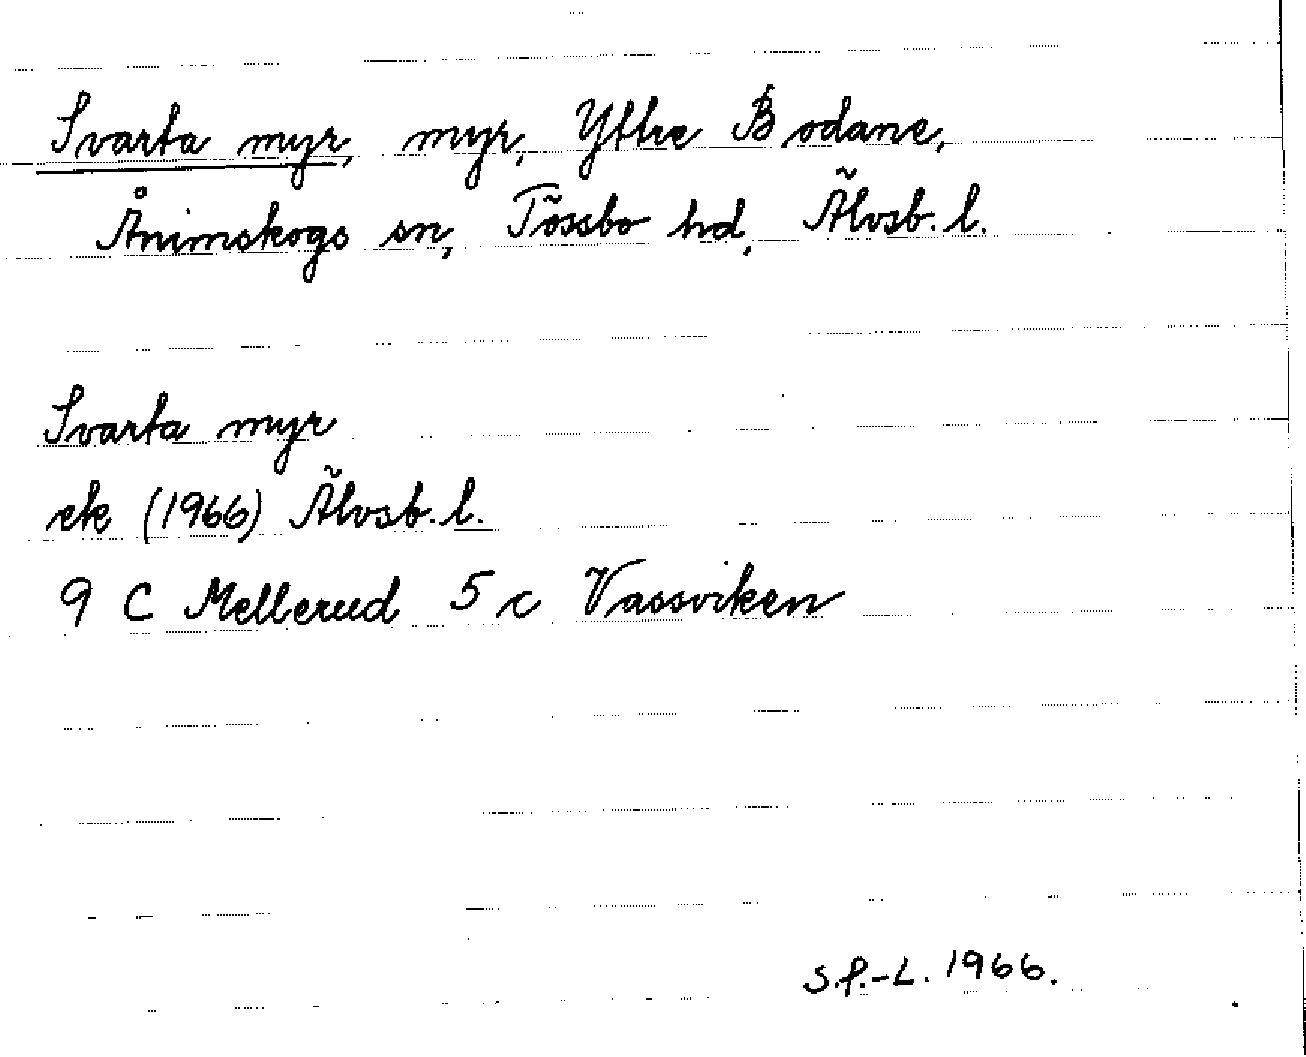 Svarta myr, myr, Yttre Bodane,
Ånimskogs sn, Tössbo hd, Älvsb. l.
Svarta myr
ek (1966) Älvsb. l.
9 C Mellerud 5 c Vassviken
S.P.-L. 1966.